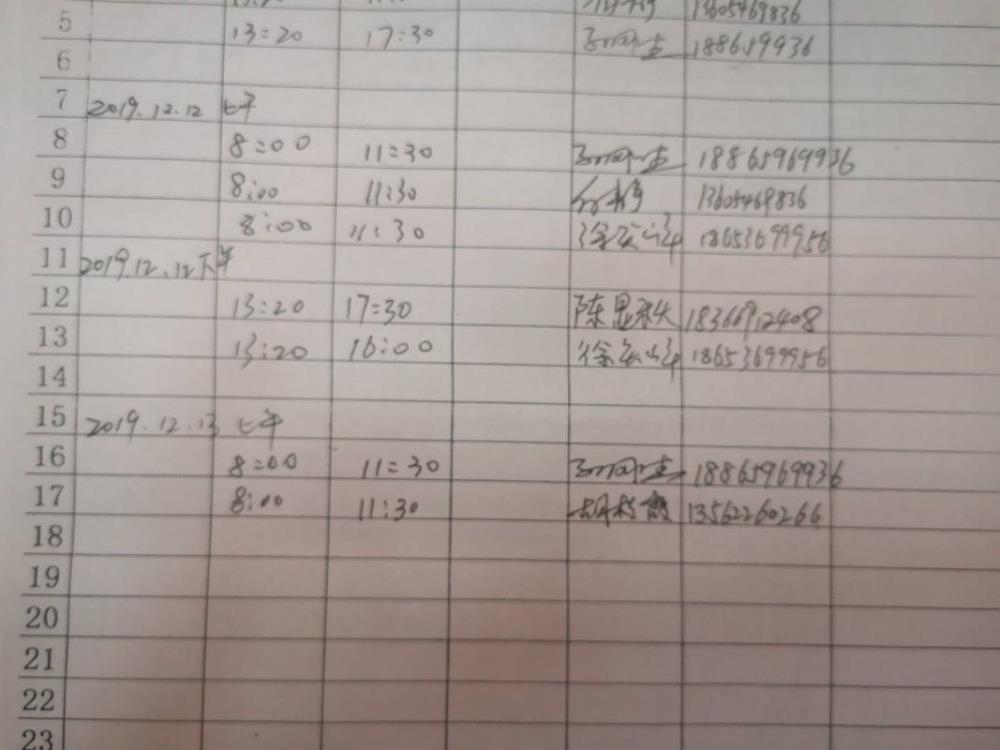 13605469836
5 13:20 17:30 188659936
6
7 2019.12.12 上午
8 8:00 11:30 18865969936
9 8:00 11:30 13605469836
10 8:00 11:30 18653699956
11 2019.12.12下午
12 13:20 17:30 陈显秋 18366912408
13 13:20 16:00 18653699956
14
15 2019.12.13 上午
16 8:00 11:30 18865969936
17 8:00 11:30 13562260266
18
19
20
21
22
23